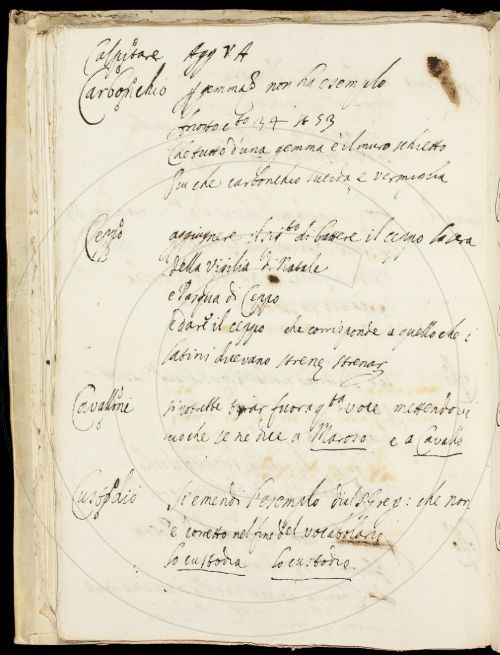 Calpitare Agg V A
Carbonchio p gemma non ha esemplo
Ariosto cto 34 st 53
Che tutto d'una gemma è il muro schietto
Più che carbonchio lucida e vermiglia
Ceppo aggiugnere di battere il ceppo la sera
della vigilia di Natale
e Pasqua di Ceppo
e dare il ceppo che corrisponde a quello che i
latini dicevano strene strenar
Cavalloni si potrebbe fuora qta voce mettendovi
ciò che se ne dice a Maroso e a Cavallo
Custodio Si emendi l'esemplo Greg: che non
è corretto nel fine del vocabolario
lo custodia lo custodio